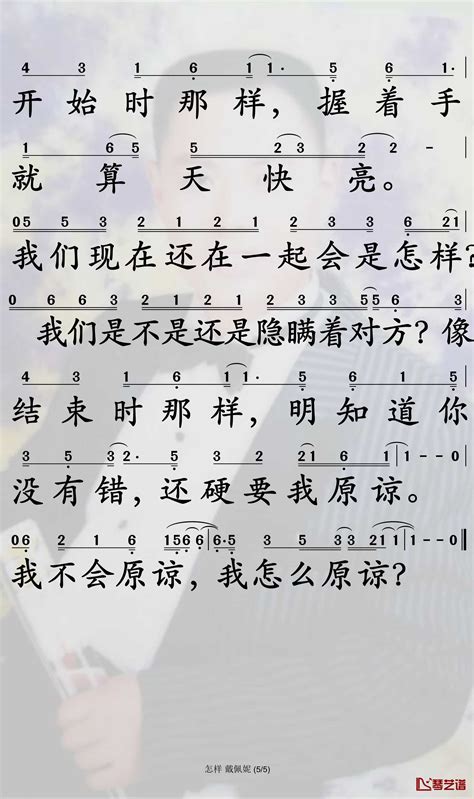 4 3 1 6 1 1· 5 6 1·
开始时那样，握着手
1 6 5 5 2 3 2 2 -
就算天快亮。
05 5 3 2 1 2 1 2 3 3 6 21
我们现在还在一起会是怎样？
0 6 6 3 2 1 2 1 2 3 5 5 6 3
我们是不是还是隐瞒着对方？像
4 3 1 6 1 1· 6 1 5
结束时那样，明知道你
3 5 3 2· 5 5 5 2 21 6 1 - - 0
没有错，还硬要我原谅。
06 2 1 6 156 6 6·5 3 5 3 3 21 1 1 - - 0
我不会原谅，我怎么原谅？
怎样 戴佩妮 (5/5)
琴艺谱